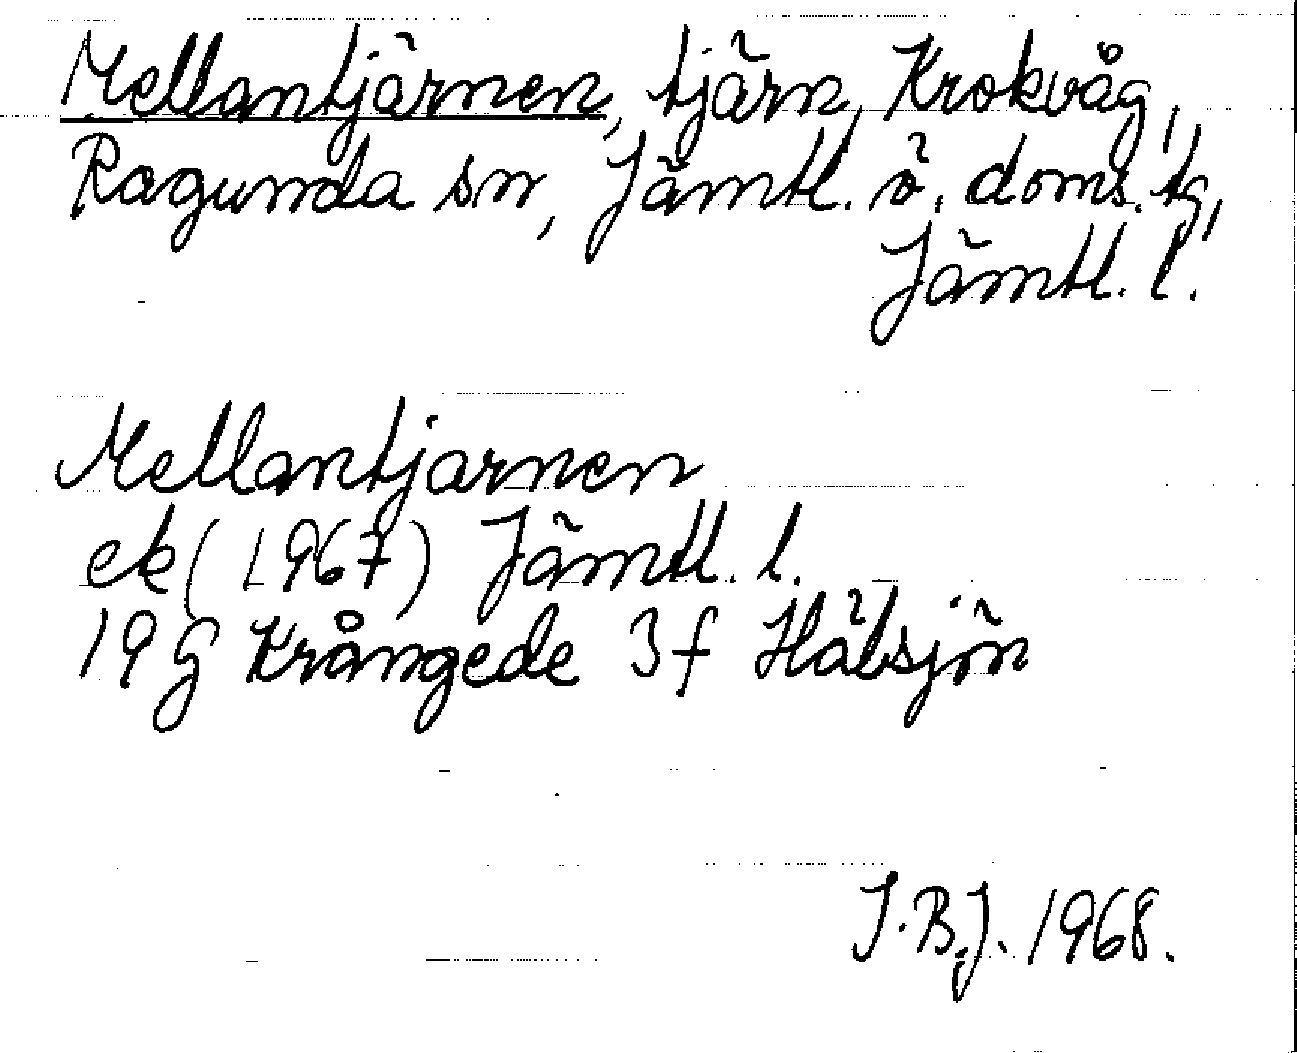 Mellantjärnen, tjärn, Krokvåg,
Ragunda sn, Jämtl. ö. doms. tg,
Jämtl. l.
Mellantjarnen
ek (1967) Jämtl. l.
19 G Krångede 3 f Hälsjön
I.B.J. 1968.